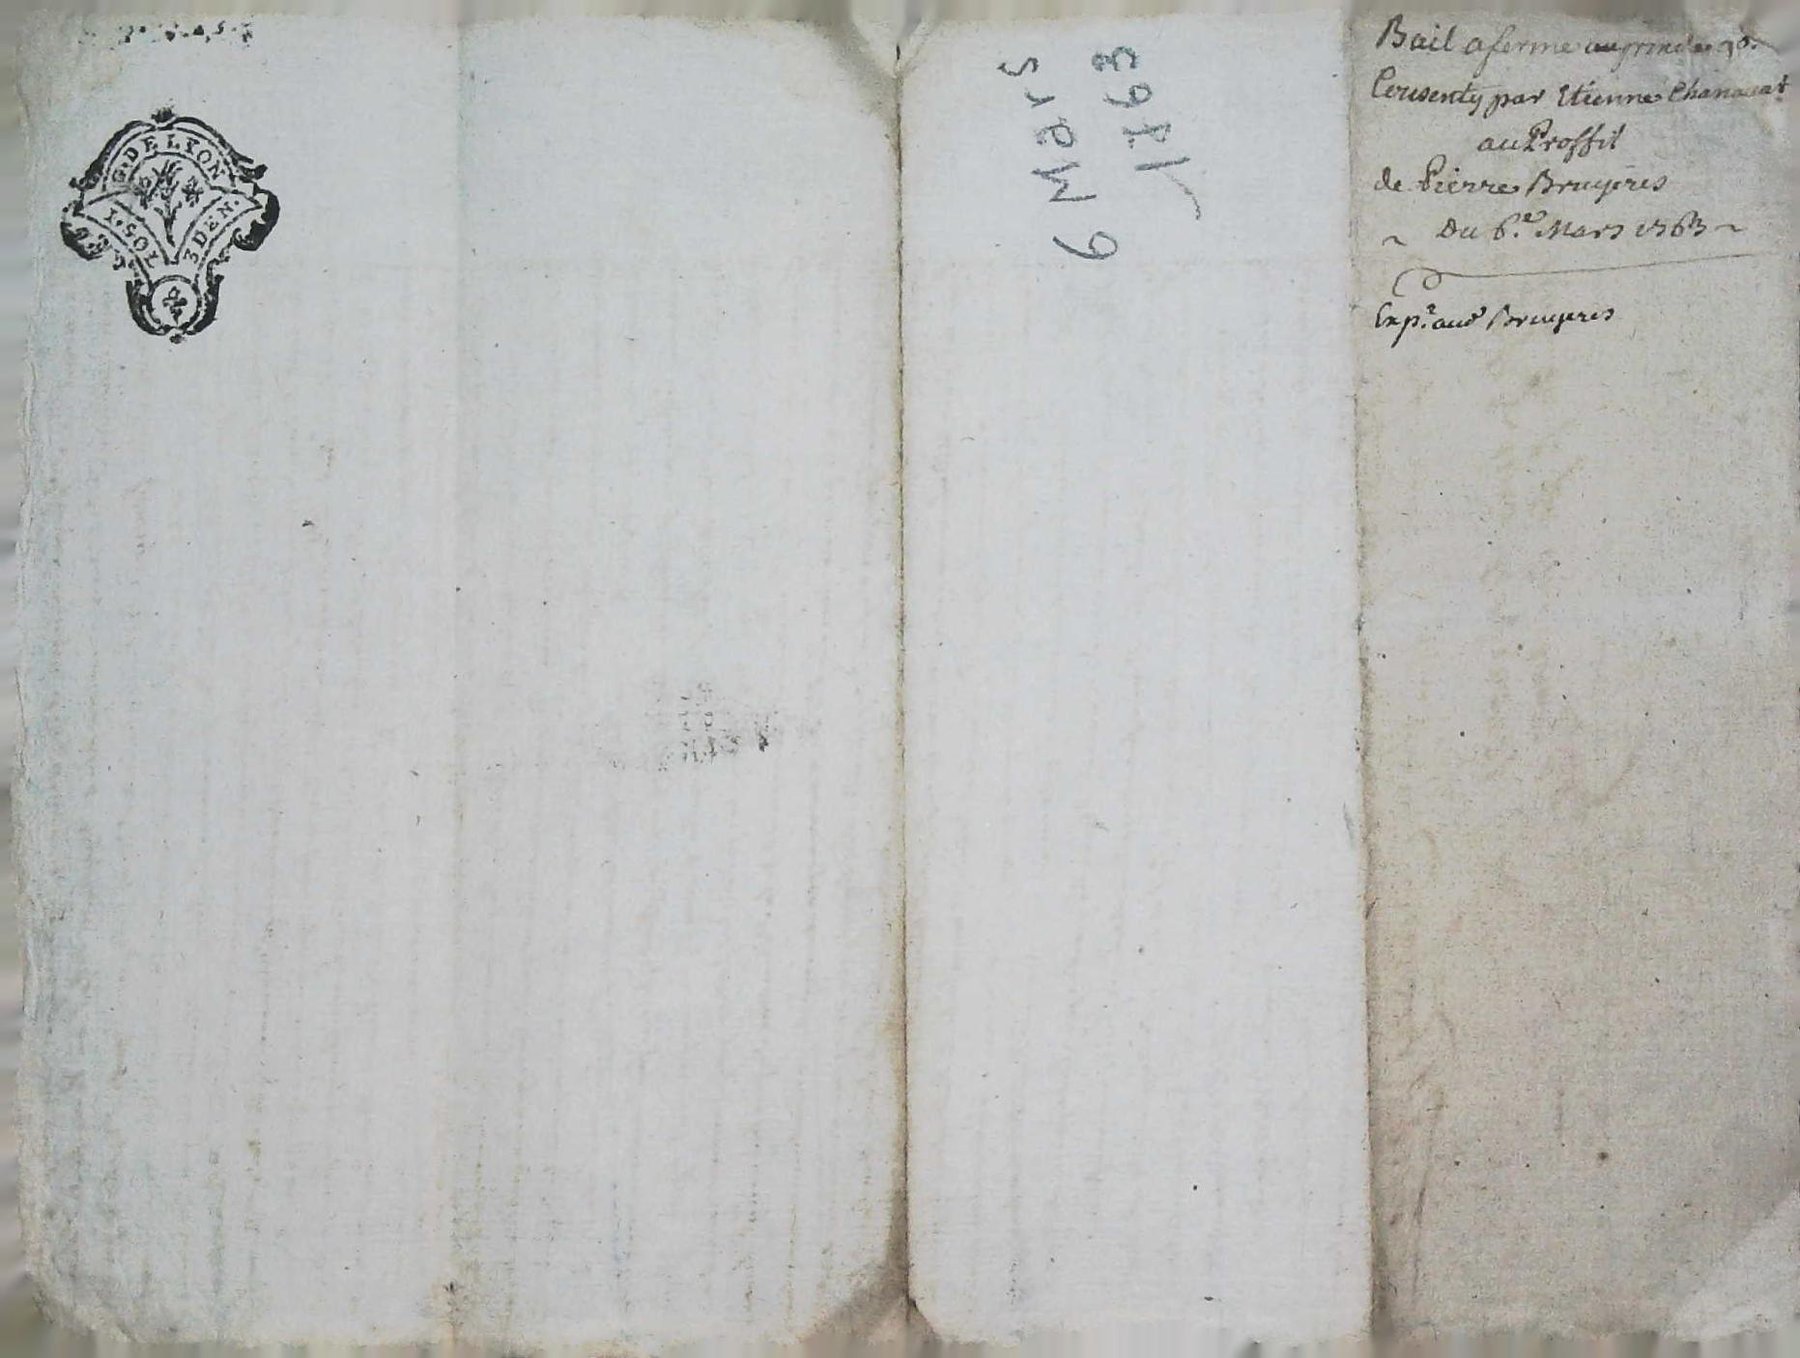 G. DE LYON
1. SOL 3 DEN.
6 Mars
1763
Bail a ferme au prix de 90.
Consenty par Etienne Chanavat
au Proffit
de Pierre Bruyeres
Du 6.e Mars 1763
Exp.e aud Bruyeres